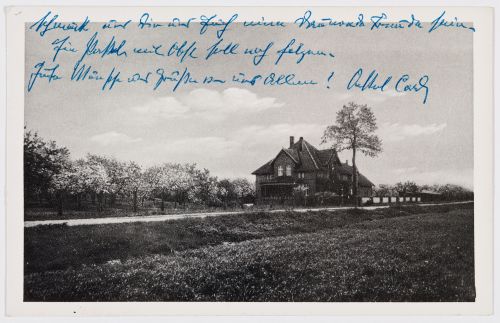 schmeckt und Dir und Euch eine besondere Freude sein.
Ein Paket mit Obst soll noch folgen.
Gute Wünsche und Grüße von uns Allen! Onkel Carl